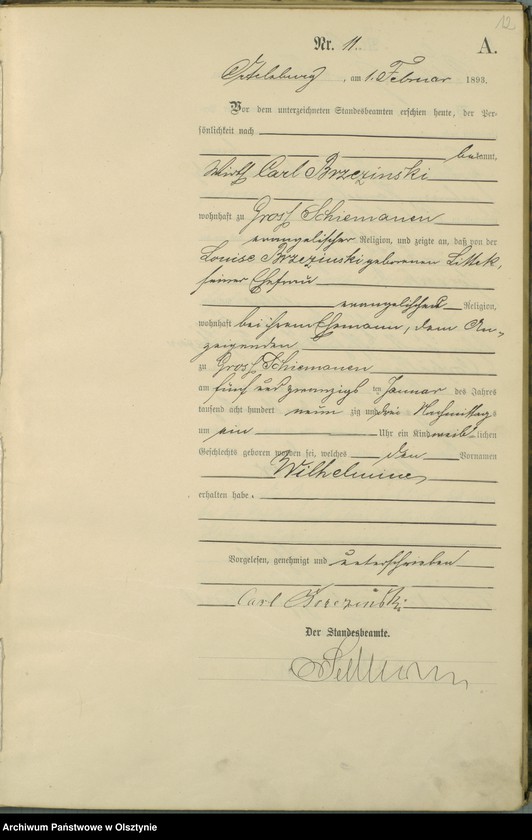 12
Nr. 11. A.
Ortelsburg, am 1. Februar 1893.
Vor dem unterzeichneten Standesbeamten erschien heute, der Per-
sönlichkeit nach
bekannt,
Wirth Carl Brzezinski
wohnhaft zu Gross Schiemanen
evangelischer Religion, und zeigte an, daß von der
Louise Brzezinski geborenen Littek,
seiner Ehefrau
evangelischer Religion,
wohnhaft bei ihrem Ehemann, dem An-
zeigenden
zu Gross Schiemanen
am fünf und zwanzigs ten Januar des Jahres
tausend acht hundert neun zig und drei Nachmittags
um ein Uhr ein Kind weib lichen
Geschlechts geboren worden sei, welches den Vornamen
Wilhelmine
erhalten habe.
Vorgelesen, genehmigt und unterschrieben
Carl Brzezinski
Der Standesbeamte.
Archiwum Państwowe w Olsztynie